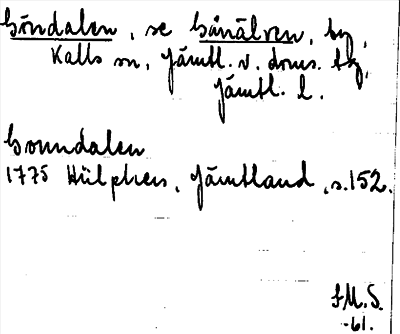 Göndalen, se Gånälven, by,
Kalls sn, Jämtl. v. doms. tg,
Jämtl. l.
Gonndalen
1775 Hülphers, Jämtland, s. 152.
J.M.S.
-61.